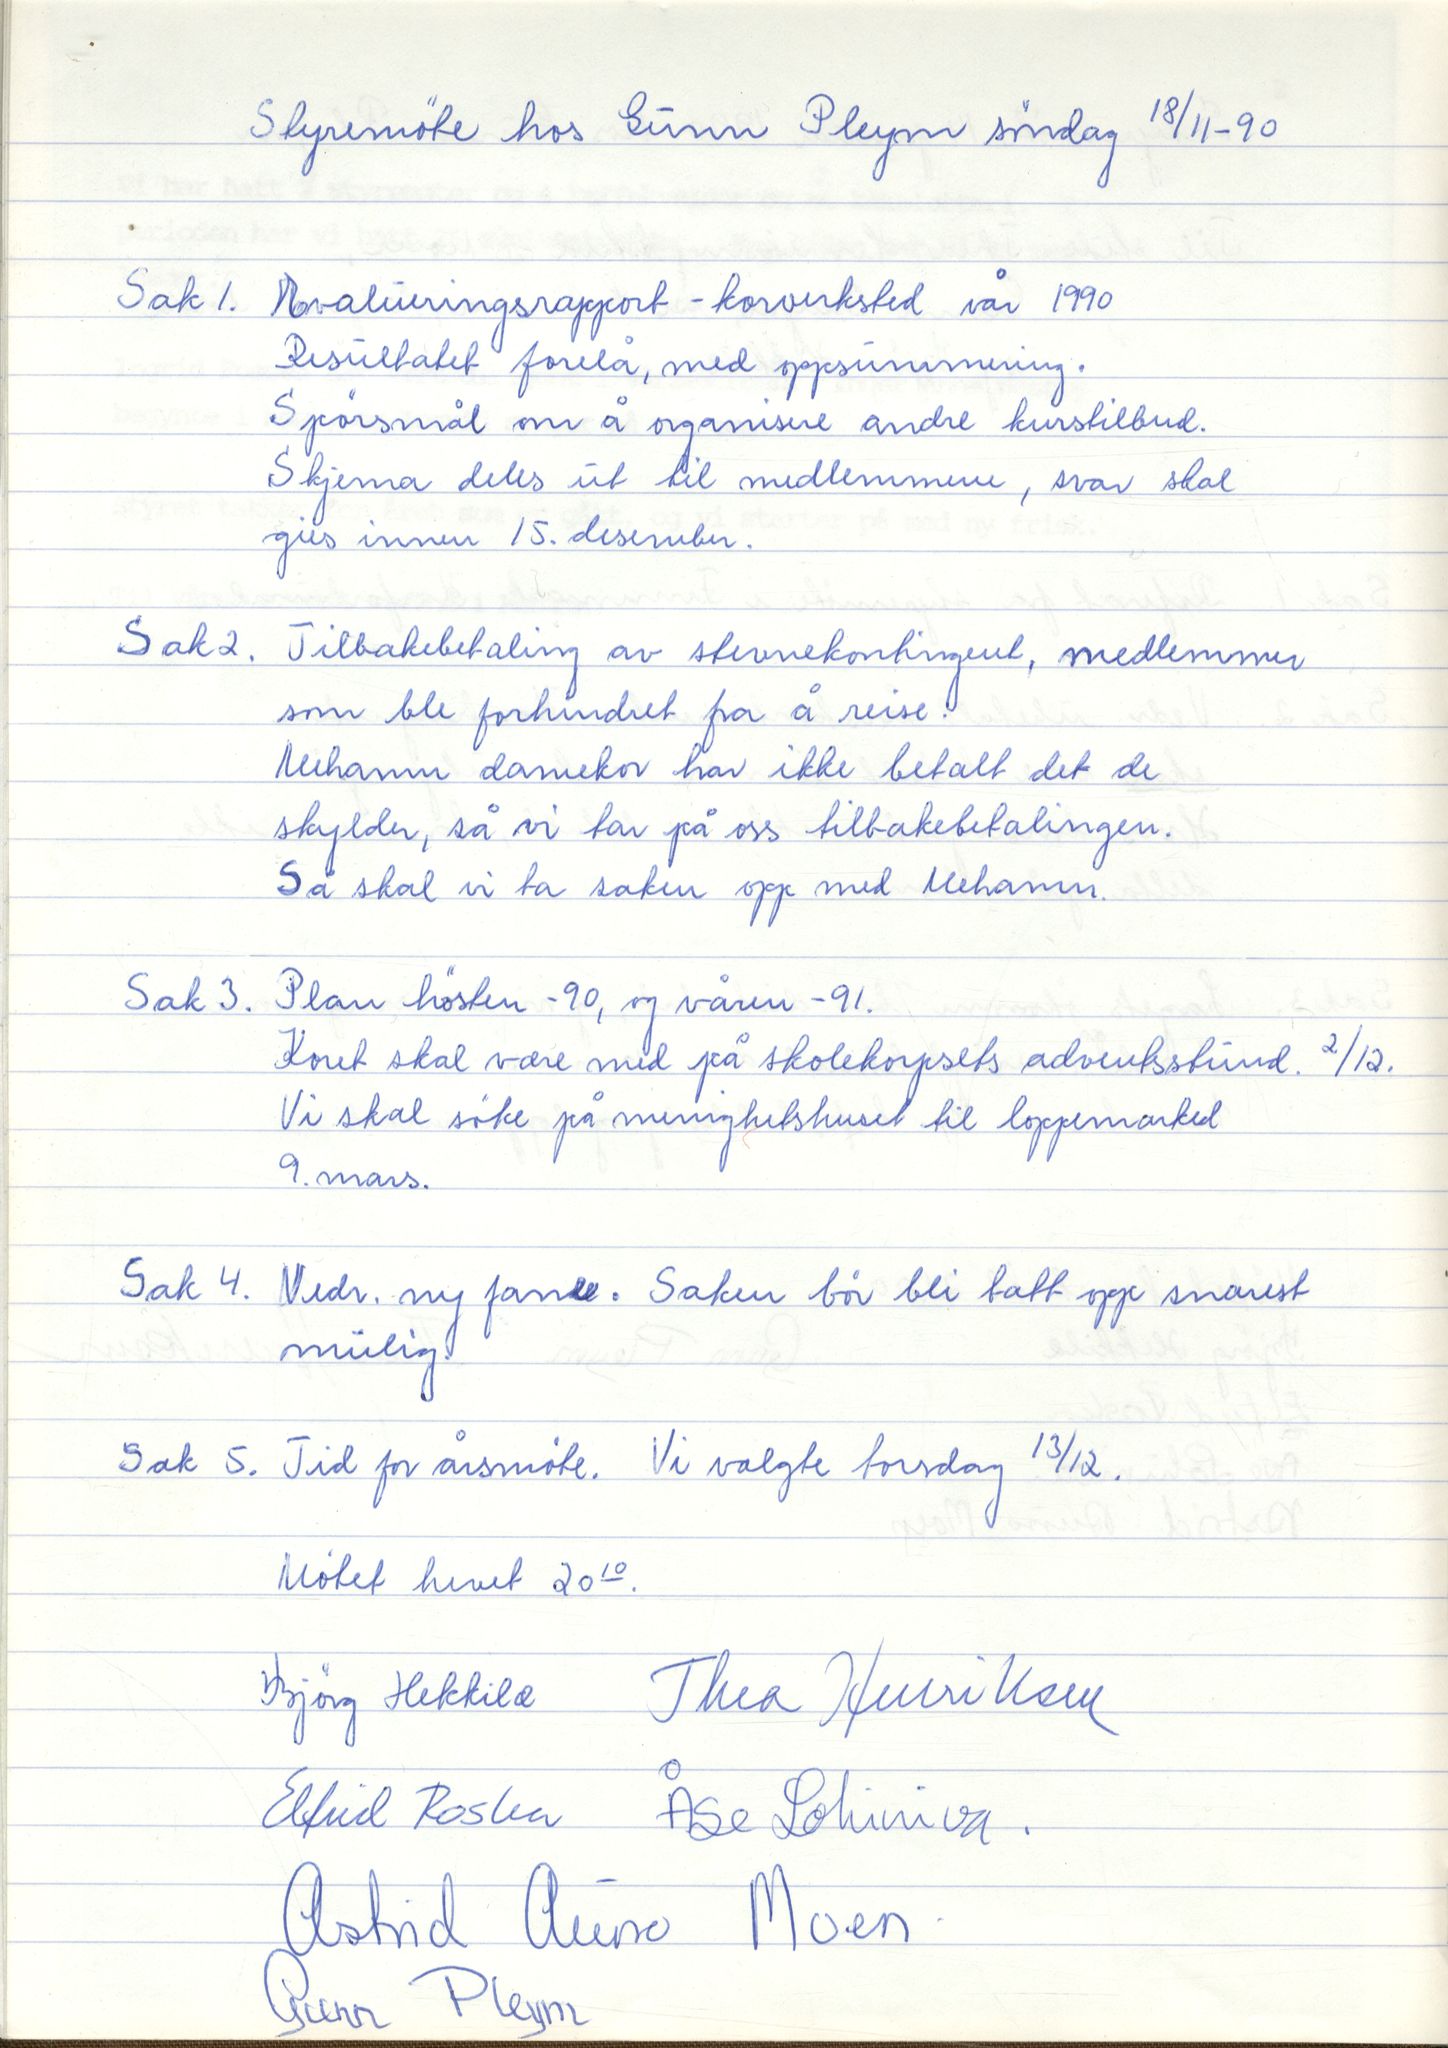 Styremöte hos Gunn Pleym söndag 18/11-90
Sak 1. Evalueringsrapport - korverksted vår 1990
Resultatet forelå, med oppsummering.
Spörsmål om å organisere andre kurstilbud.
Skjema deles ut til medlemmene, svar skal
gies innen 15. desember.
Sak 2. Tilbakebetaling av stevnekontingent, medlemmer
som ble forhindret fra å reise.
Mehamn damekor har ikke betalt det de
skylder, så vi tar på oss tilbakebetalingen.
Så skal vi ta saken opp med Mehamn.
Sak 3. Plan hösten -90, og våren -91.
Koret skal være med på skolekorpsets adventsstund. 2/12.
Vi skal söke på menighetshuset til loppemarked
9. mars.
Sak 4. Vedr. ny fane. Saken bör bli tatt opp snarest
mulig.
Sak 5. Tid for årsmöte. Vi valgte torsdag 13/12.
Mötet hevet 20¹⁰.
Björg Hekkilä Thea Henriksen
Elfrid Roska Åse Lohiniva.
Astrid Auno Moen
Gunn Pleym